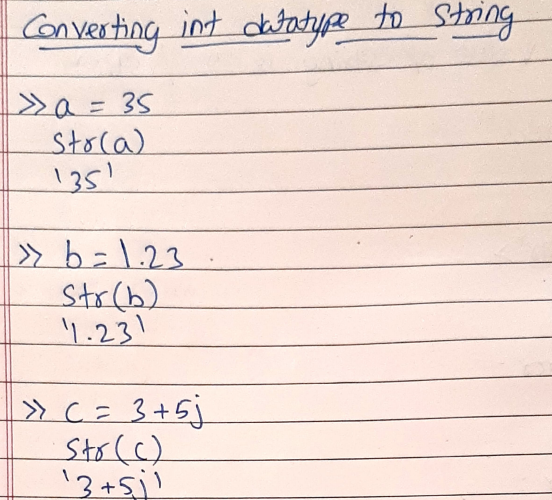 Converting int datatype to String
>> a = 35
Str(a)
'35'
>> b = 1.23
Str(b)
'1.23'
>> c = 3+5j
Str(c)
'3+5j'